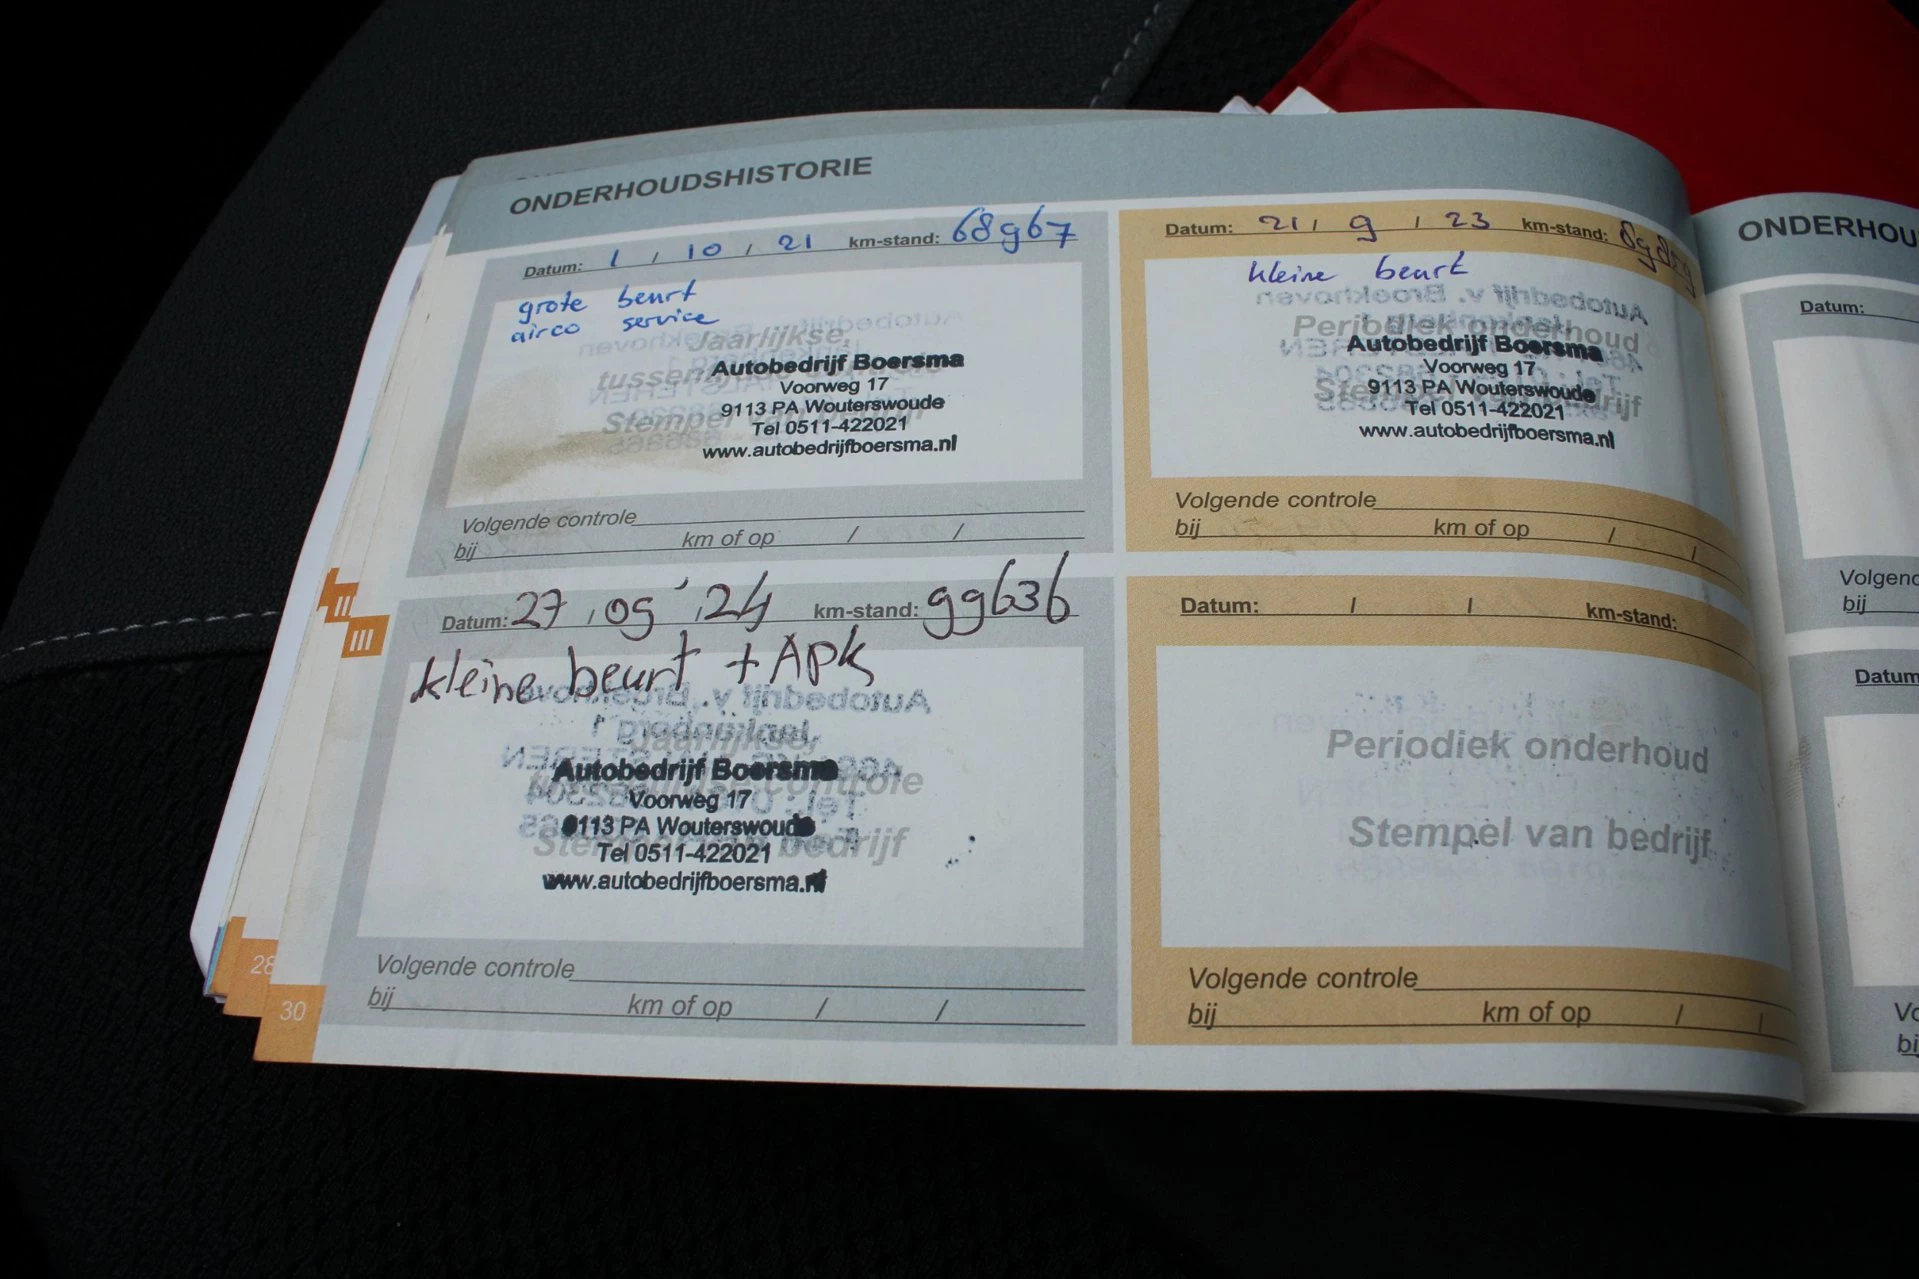 ONDERHOUDSHISTORIE
Datum: 1 / 10 / 21 km-stand: 68967
grote beurt
airco service
Jaarlijkse,
Autobedrijf Boersma
Voorweg 17
9113 PA Wouterswoude
Tel 0511-422021
www.autobedrijfboersma.nl
Volgende controle
bij km of op / /
Datum: 21 / 9 / 23 km-stand:
kleine beurt
Periodiek onderhoud
Autobedrijf Boersma
Voorweg 17
9113 PA Wouterswoude
Tel 0511-422021
www.autobedrijfboersma.nl
Volgende controle
bij km of op / /
Datum: 27 / 09 / '24 km-stand: 99636
kleine beurt + APK
Jaarlijkse,
Autobedrijf Boersma
Voorweg 17
9113 PA Wouterswoude
Tel 0511-422021
www.autobedrijfboersma.nl
Volgende controle
bij km of op / /
Datum: / / km-stand:
Periodiek onderhoud
Stempel van bedrijf
Volgende controle
bij km of op / /
III
28
30
ONDERHOU
Datum:
Volgenc
bij
Datum
Vo
bi